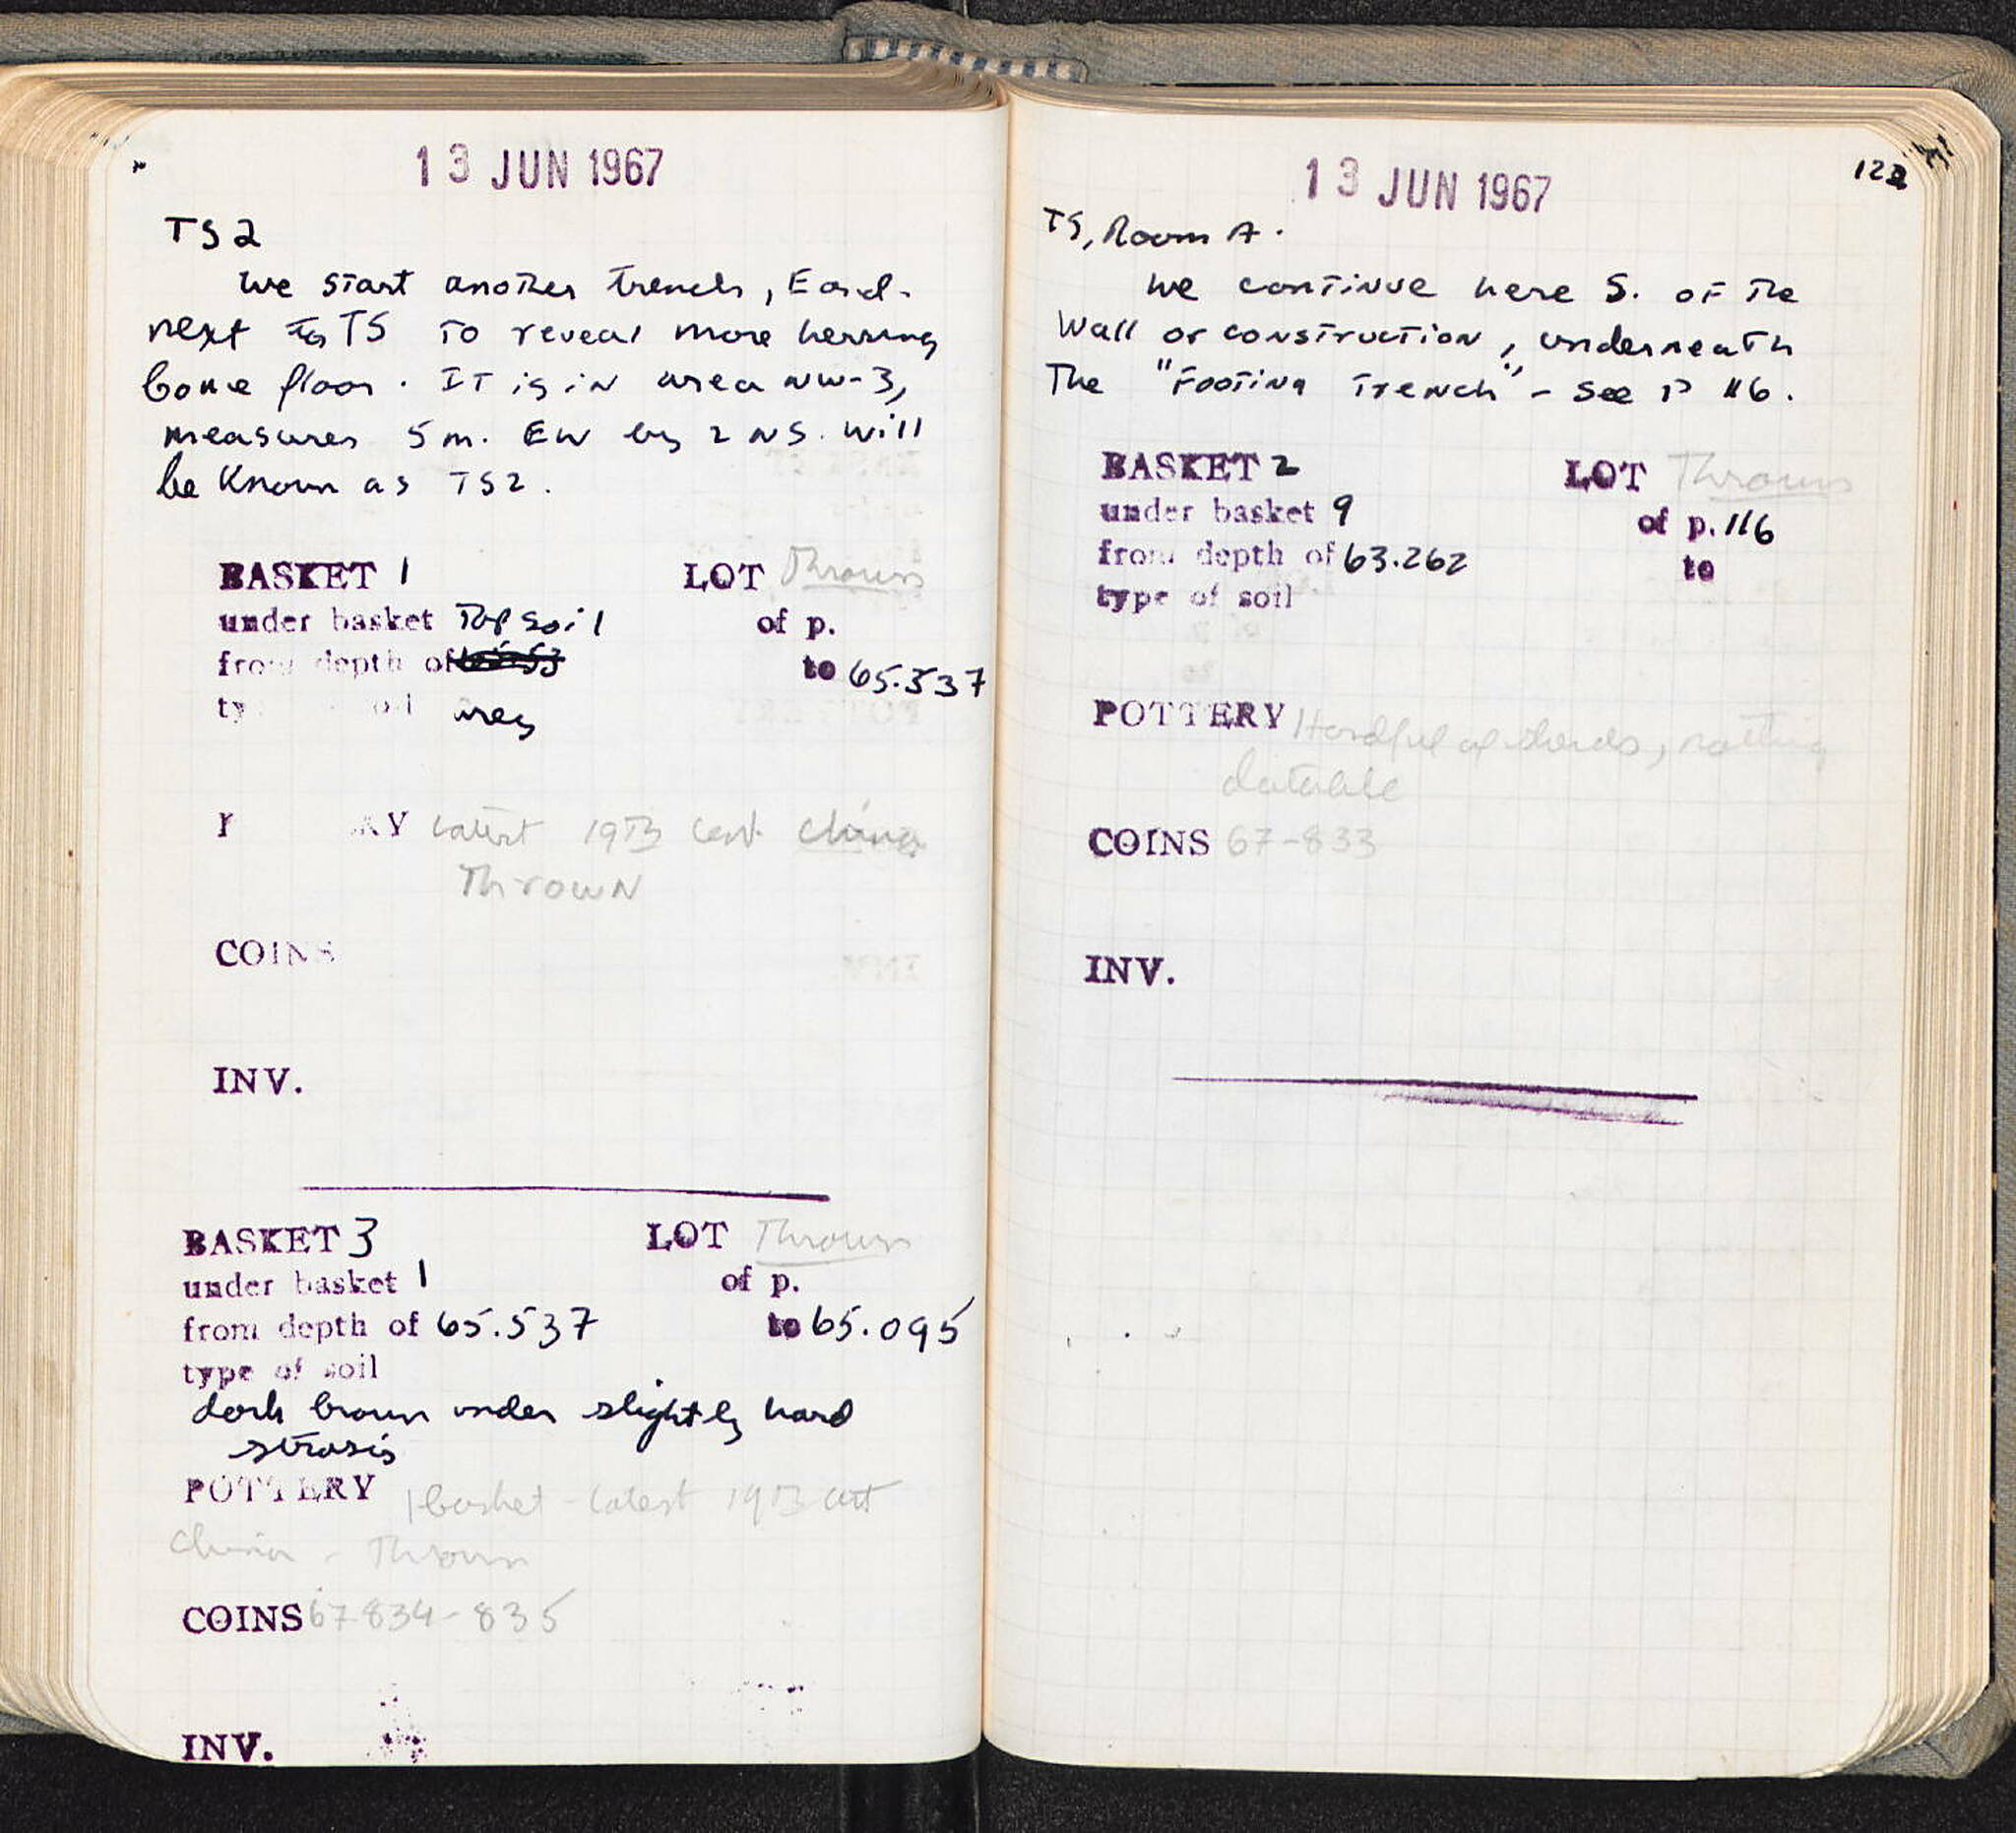 13 JUN 1967
TS2
We start another trench, East.
next to TS to reveal more herring
bone floor. It is in area NW-3,
measures 5 m. EW by 2 NS. Will
be known as TS2.
BASKET 1 LOT Thrown
under basket Top soil of p.
from depth of to 65.537
ty oil grey
P RY Latest 19th cent china
Thrown
COINS
INV.
BASKET 3 LOT Thrown
under basket 1 of p.
from depth of 65.537 to 65.095
type of soil
dark brown under slightly hard
strosis
POTTERY 1 basket - latest 19th cent
china - Thrown
COINS 67-834-835
INV.
13 JUN 1967
122
TS, Room A.
We continue here S. of the
Wall or construction, underneath
The "Footing Trench" - See P 116.
BASKET 2 LOT Thrown
under basket 9 of p. 116
from depth of 63.262 to
type of soil
POTTERY Handful of sherds, nothing
datable
COINS 67-833
INV.